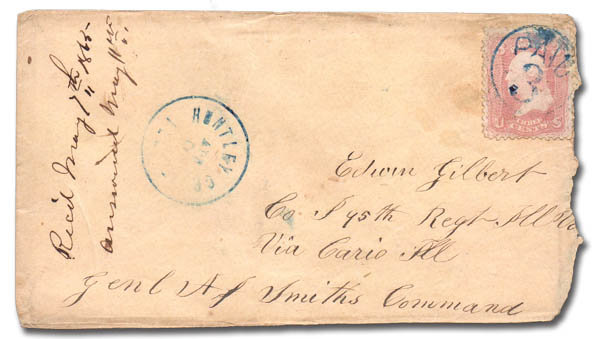 Rec'd May 7th 1865
answered May 11th
HUNTLEY
PAID
3
U S
THREE
CENTS
Edwin Gilbert
Co I 95th Regt Ill Vo
Via Cario Ill
Genl A J Smiths Command